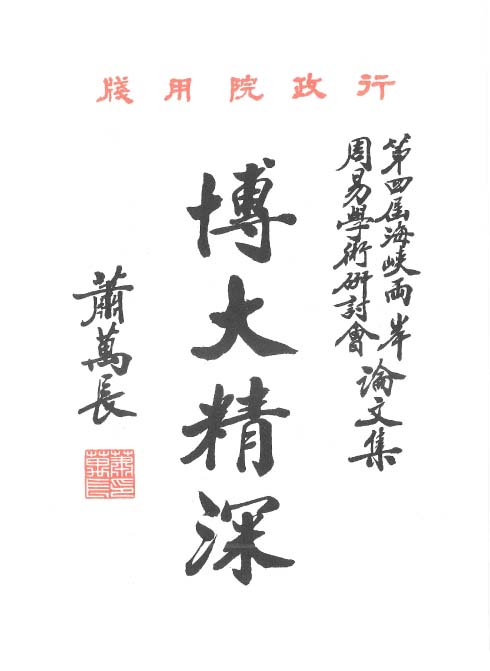 行政院用牋
第四屆海峽兩岸
周易學術研討會
論文集
博大精深
蕭萬長
蕭萬長印